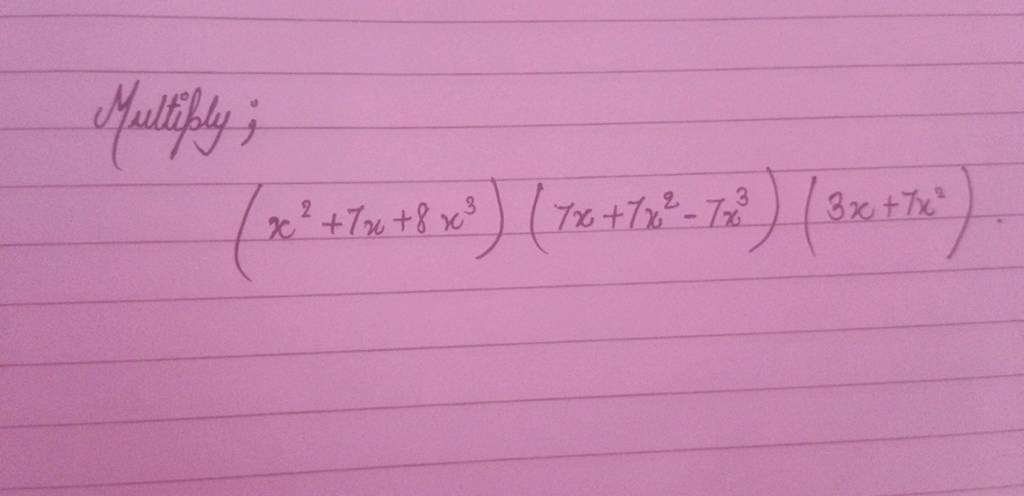 Multiply;
(x² + 7x + 8x³) (7x + 7x² - 7x³) (3x + 7x²).